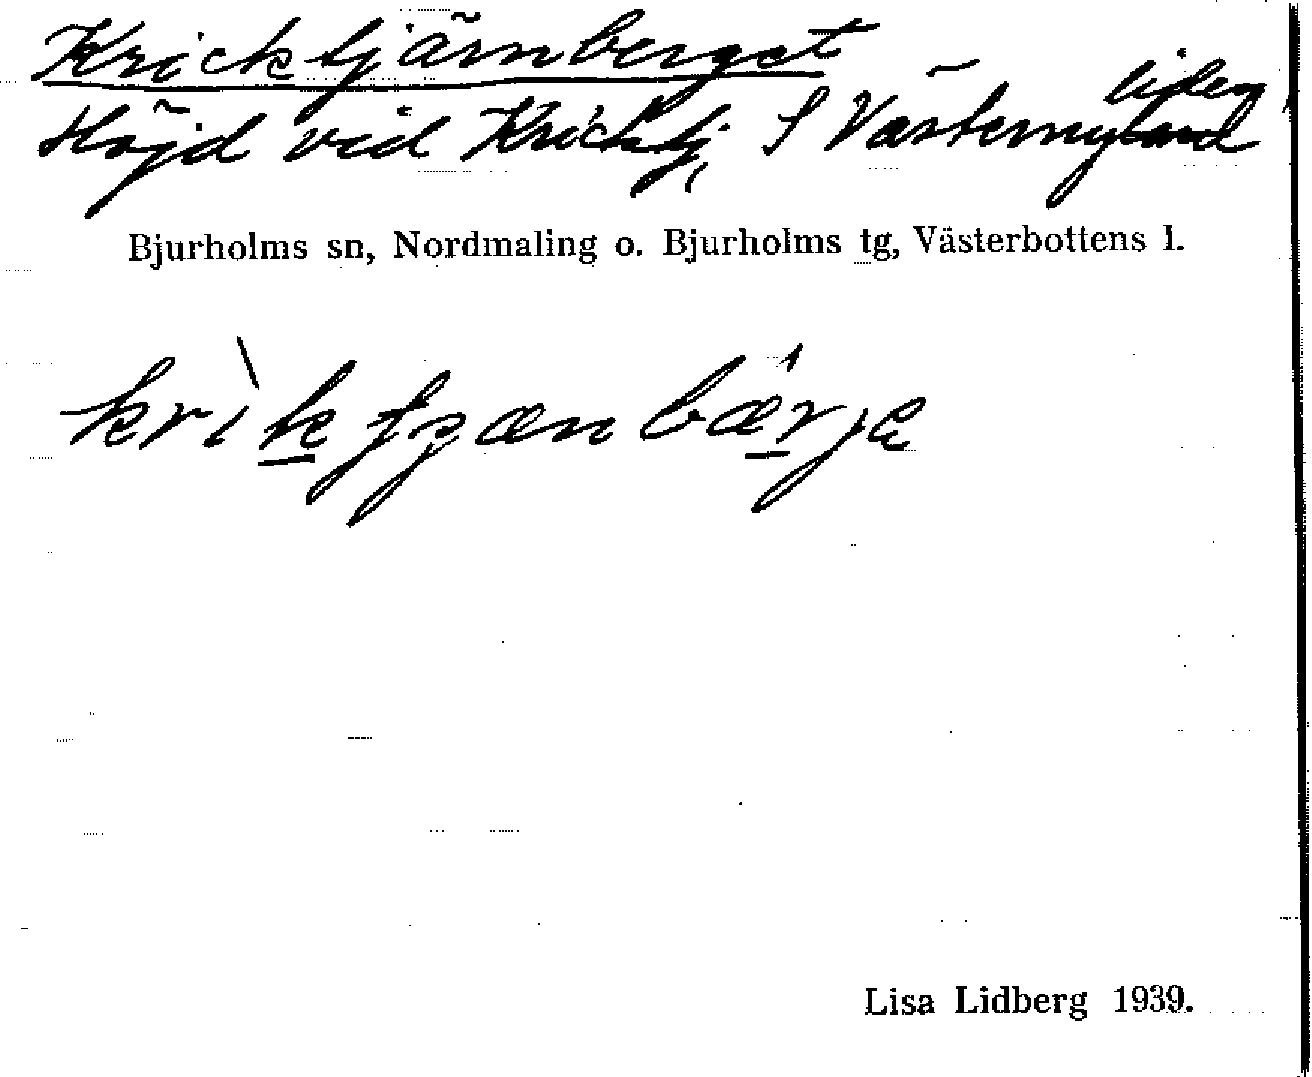 Kricktjärnberget
Höjd vid Kricktj, S Västernyliden
Bjurholms sn, Nordmaling o. Bjurholms tg, Västerbottens l.
Lisa Lidberg 1939.